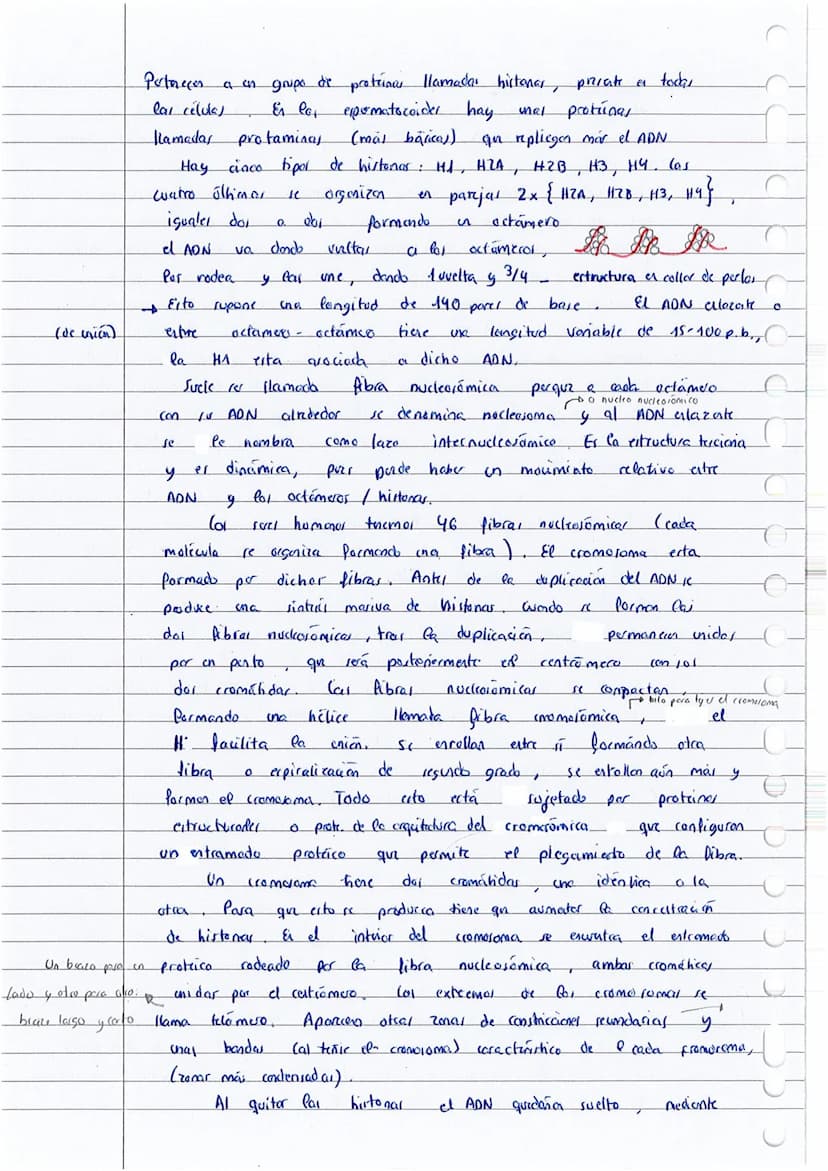 Pertenecen a un grupo de proteínas llamadas histonas, presente en todas
las células. En los espermatozoides hay unas proteínas
llamadas protaminas (más básicas) que repliegan más el ADN
Hay cinco tipos de histonas: H1, H2A, H2B, H3, H4. Las
cuatro últimas se organizan en parejas 2x {H2A, H2B, H3, H4},
iguales dos a dos formando un octámero
el ADN va dando vueltas a los octámeros,
los rodea y las une, dando 1 vuelta y 3/4 - estructura en collar de perlas
→ Esto supone una longitud de 140 pares de base. El ADN enlazante o
(de unión)
entre octámero-octámero tiene una longitud variable de 15-100 p.b.,
la H1 esta asociada a dicho ADN.
Suele ser llamada fibra nucleosómica porque a cada octámero
→ o nucleo nucleosómico
con su ADN alrededor se denomina nucleosoma y al ADN enlazante
se le nombra como lazo internucleosómico. Es la estructura terciaria
y es dinámica, pues puede haber un movimiento relativo entre
ADN y los octámeros / histonas.
Los seres humanos tenemos 46 fibras nucleosómicas (cada
molécula se organiza formando una fibra). El cromosoma esta
formado por dichas fibras. Antes de la duplicación del ADN se
produce una síntesis masiva de histonas. Cuando se forman las
dos fibras nucleosómicas, tras la duplicación, permanecen unidas
por un punto, que será posteriormente el centrómero con sus
dos cromátidas. Las fibras nucleosómicas se compactan
→ hilo para tejer el cromosoma
formando una hélice llamada fibra cromosómica, el
H1 facilita la unión. Se enrollan entre sí formando otra
fibra o espiralización de segundo grado, se enrollan aún más y
forman el cromosoma. Todo esto está sujetado por proteínas
estructurales o prot. de la arquitectura del cromosómica que configuran
un entramado protéico que permite el plegamiento de la fibra.
Un cromosoma tiene dos cromátidas, una idéntica a la
otra. Para que esto se produzca tiene que aumentar la concentración
de histonas. En el interior del cromosoma se encuentra el entramado
Un brazo para un
protéico rodeado por la fibra nucleosómica, ambas cromátidas
lado y otro para otro.
unidas por el centrómero. Los extremos de los cromosomas se
brazo largo y corto
llama telómero. Aparecen otras zonas de constricciones secundarias y
unas bandas (al teñir el cromosoma) característico de cada cromosoma,
(zonas más condensadas).
Al quitar las histonas el ADN quedaría suelto, mediante